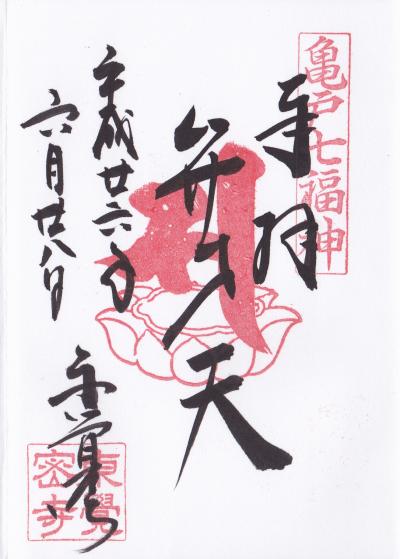 亀戸七福神
奉拝
弁才天
平成廿六年
六月廿八日
東覚寺
東覺密寺